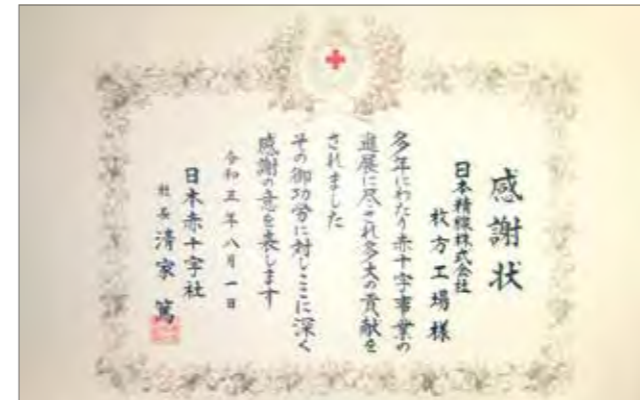 感謝状
日本精線株式会社
枚方工場様
多年にわたり赤十字事業の
進展に尽され多大の貢献を
されました
その御功労に対しここに深く
感謝の意を表します
令和五年八月一日
日本赤十字社
社長 清家 篤